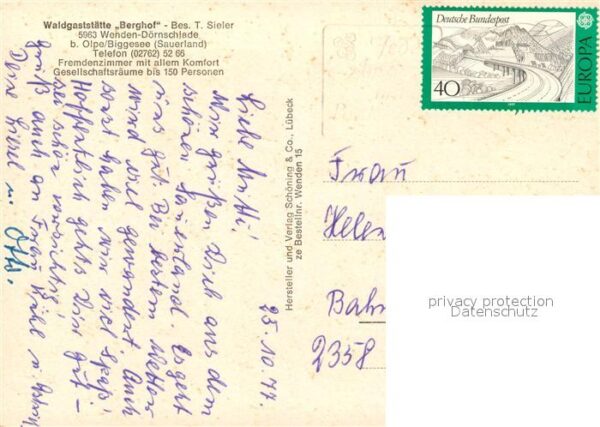 Waldgaststätte „Berghof" - Bes. T. Sieler
5963 Wenden-Dörnschlade
b. Olpe/Biggesee (Sauerland)
Telefon (02762) 52 66
Fremdenzimmer mit allem Komfort
Gesellschaftsräume bis 150 Personen
25.10.77
Liebe
Wir grüßen Dich aus dem
schönen Sauerland. Es geht
uns gut. Bei bestem Wetter
wird viel gewandert. Auch
sonst haben wir viel Spaß!
Hoffentlich gehts Dir gut -
sei schön vorsichtig!
Gruß auch an Frau
Deine u. Otto.
Hersteller und Verlag Schöning & Co., Lübeck
ze Bestellnr. Wenden 15
Deutsche Bundespost
40
EUROPA
Frau
Helen
Bahn
2358
privacy protection
Datenschutz